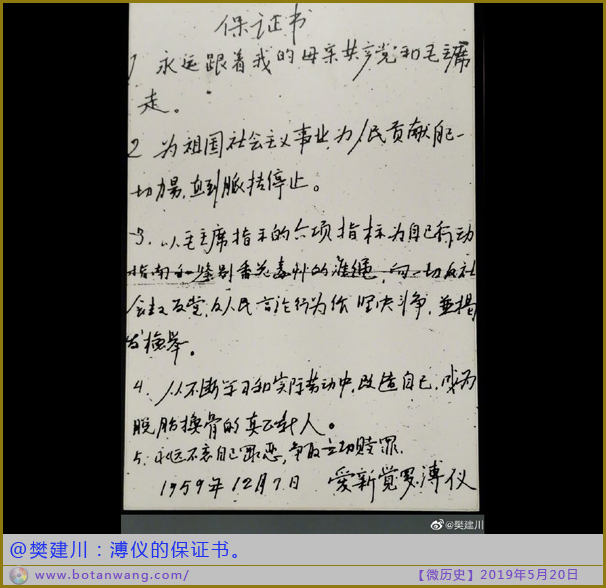 保证书
1 永远跟着我的母亲共产党和毛主席
走。
2 为祖国社会主义事业，为人民贡献我一
切力量，直到脉搏停止。
3. 以毛主席指示的六项指标为自己行动
指南和鉴别香花毒草的准绳，向一切反社
会主义反党，反人民言论行为作坚决斗争，并揭
发检举。
4. 从不断学习和实际劳动中，改造自己，成为
脱胎换骨的真正新人。
5. 永远不忘自己罪恶，争取立功赎罪。
1959年12月7日 爱新觉罗溥仪
@樊建川
@樊建川：溥仪的保证书。
www.botanwang.com/ 【微历史】2019年5月20日